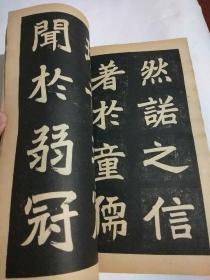 然諾之信
著於童儒
聞於弱冠